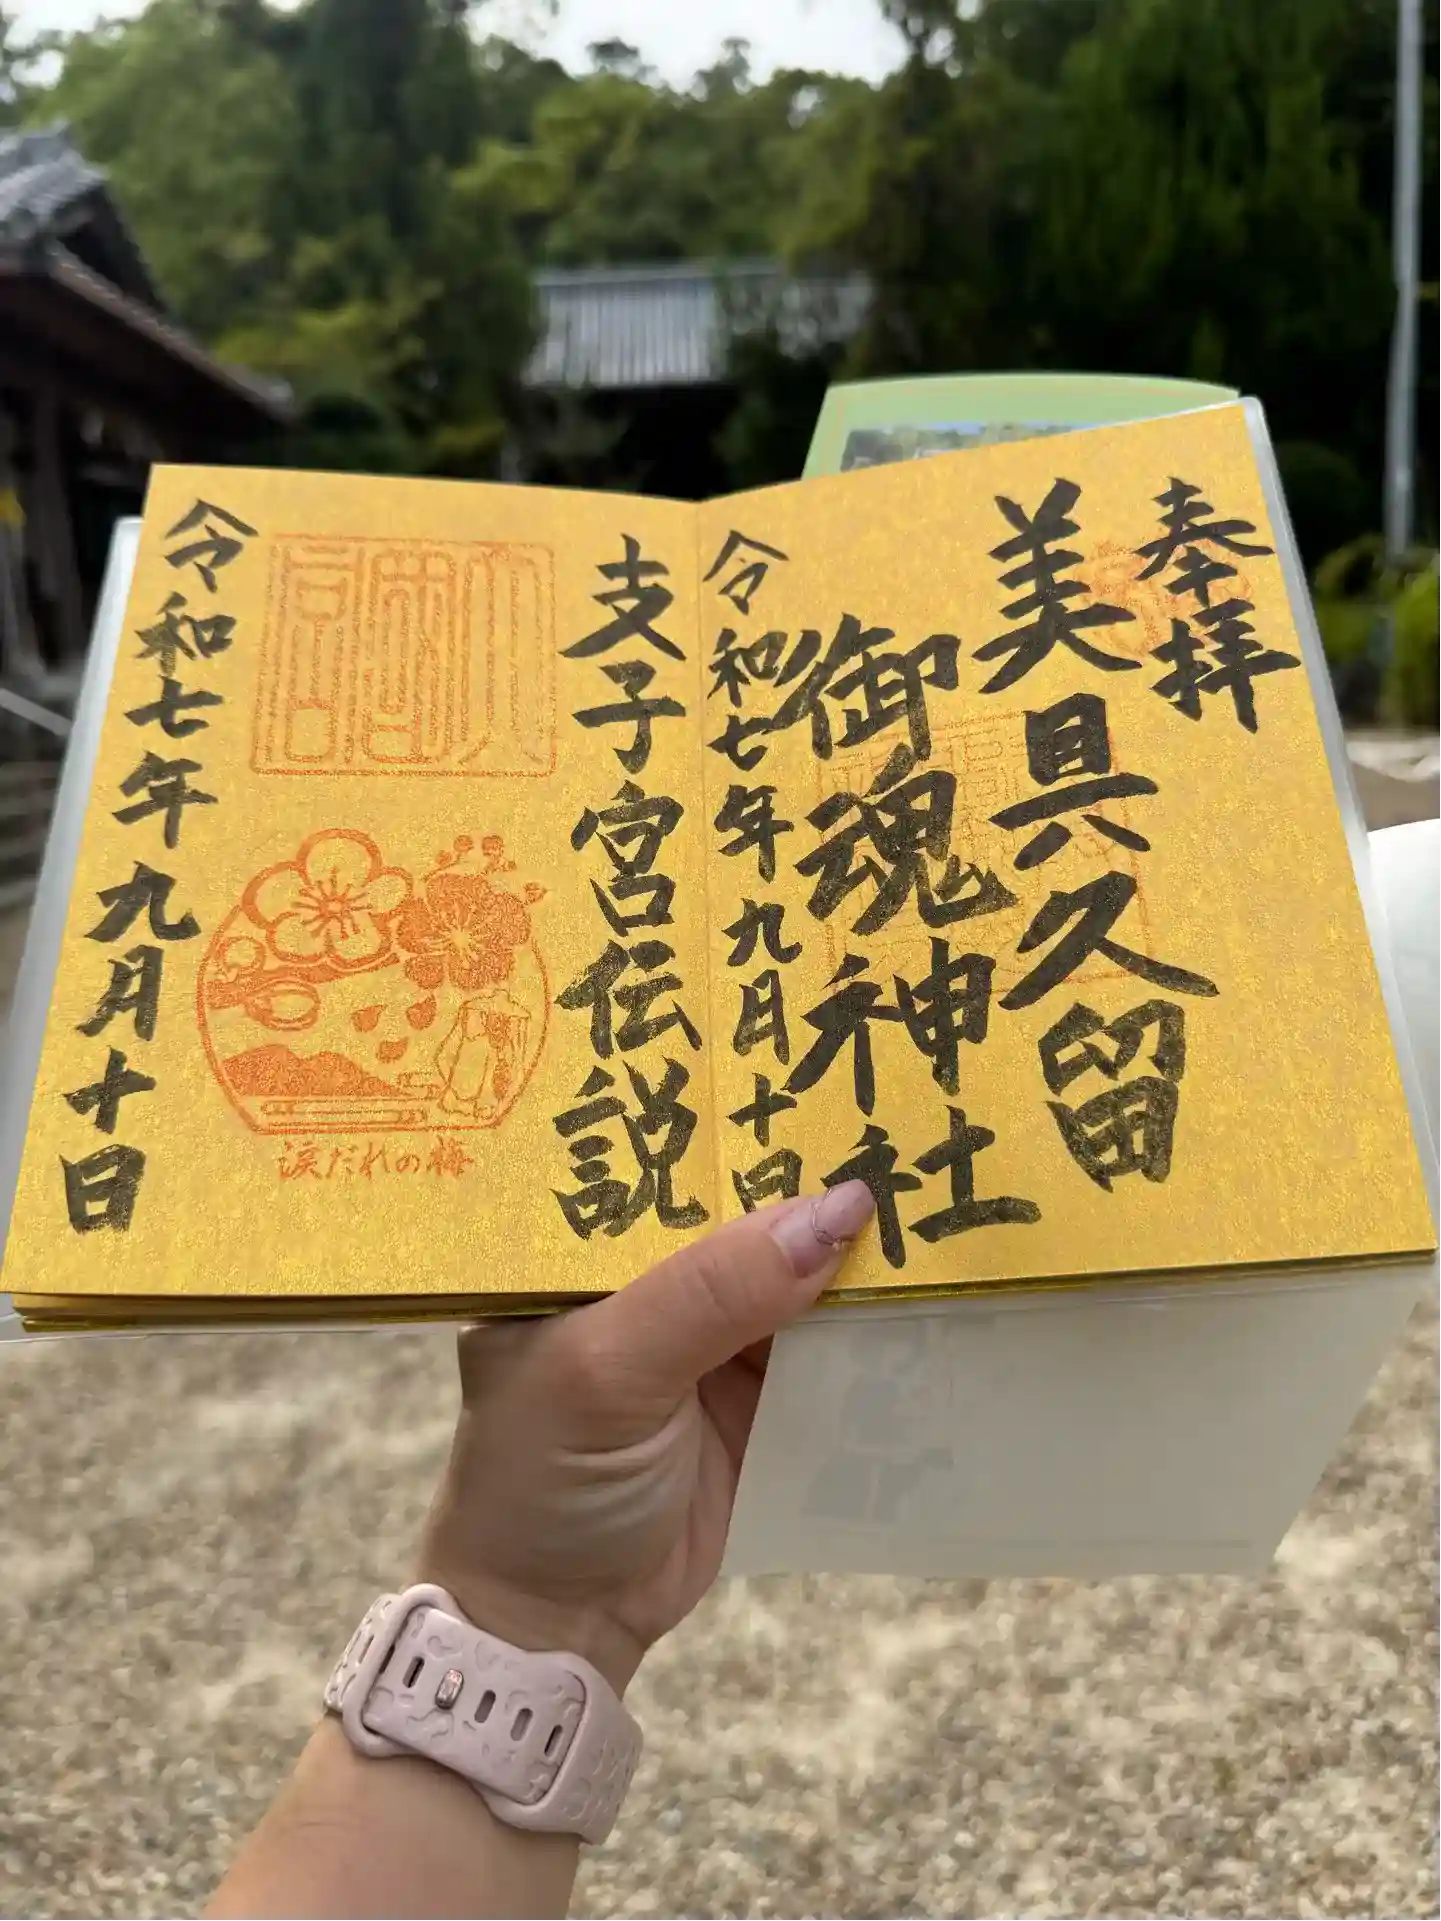 奉拝
美具久留
御魂神社
令和七年九月十日
支子宮伝説
涙だれの梅
令和七年九月十日